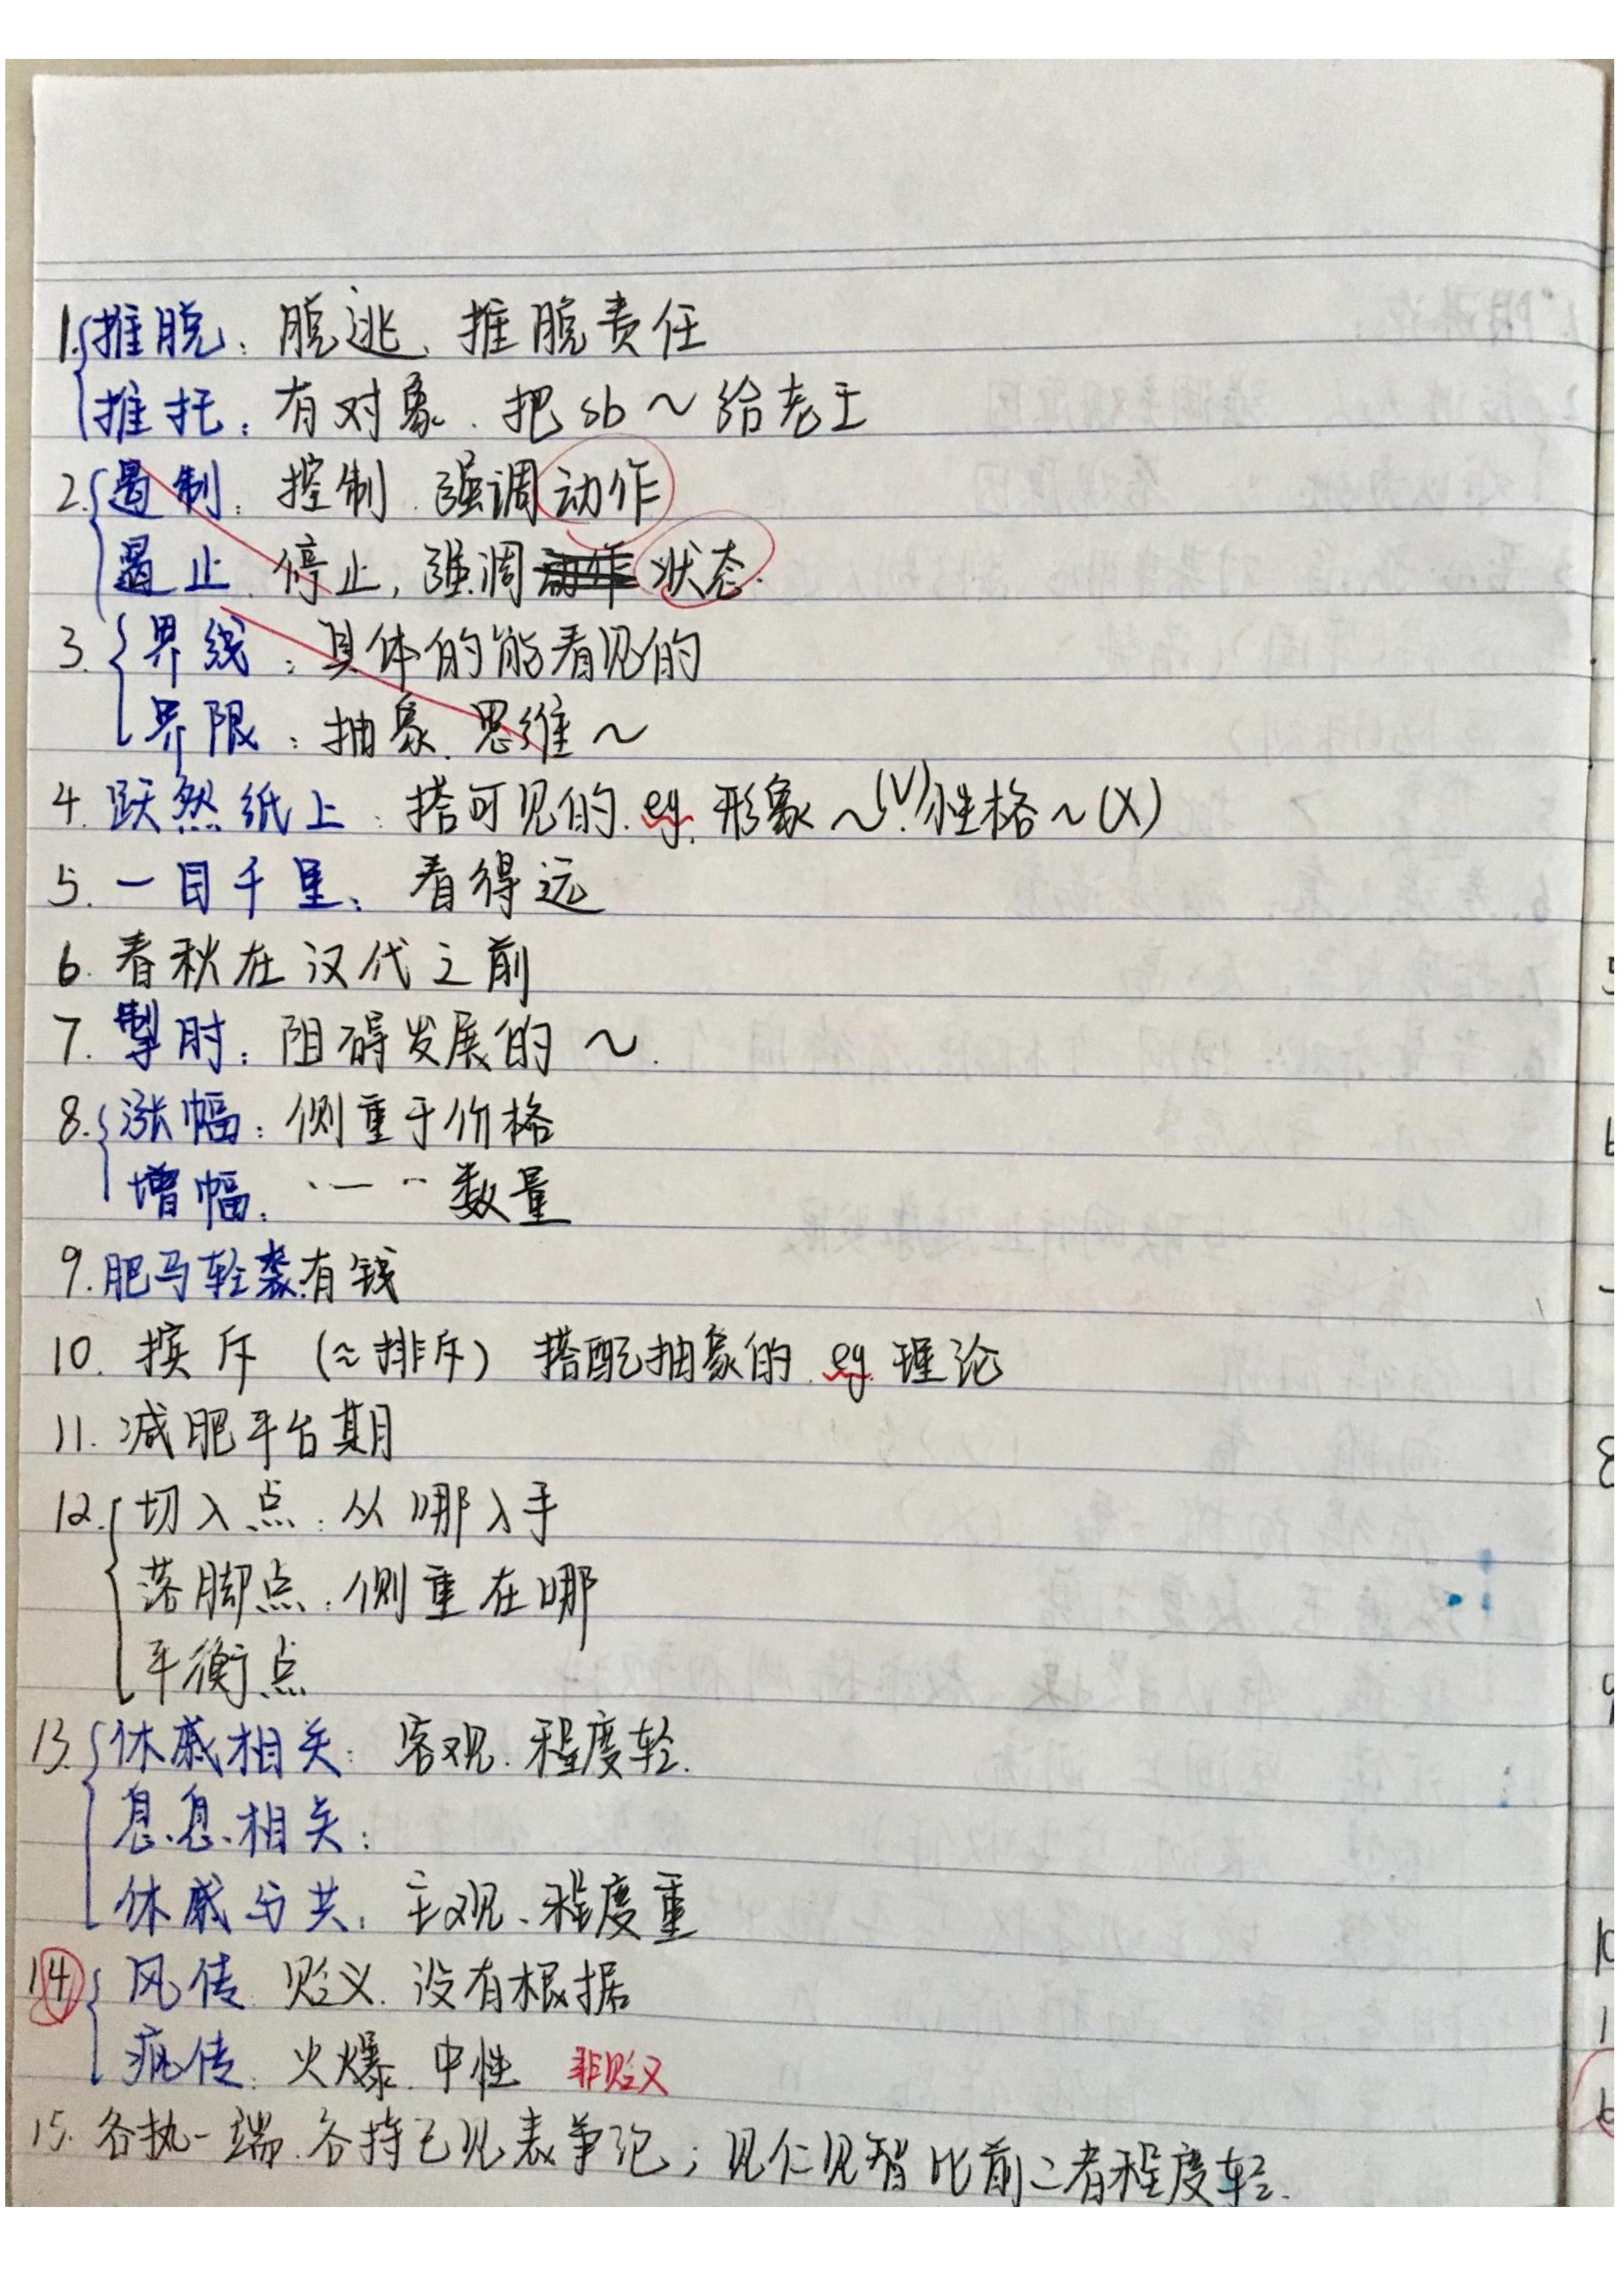 1. 推脱：脱逃、推脱责任
推托：有对象、把sb～给老王
2. 遏制：控制、强调动作
遏止、停止，强调状态.
3. 界线：具体的能看见的
界限：抽象、思维～
4. 跃然纸上：搭可见的.eg.形象～(√).性格～(X)
5. 一目千里：看得远
6. 春秋在汉代之前
7. 掣肘：阻碍发展的～.
8. 涨幅：侧重于价格
增幅：、一 ‥ 数量
9. 肥马轻裘：有钱
10. 摈斥（≈排斥）搭配抽象的.eg.理论
11. 减肥平台期
12. 切入点：从哪入手
落脚点：侧重在哪
平衡点
13. 休戚相关：客观、程度轻.
息息相关：
休戚与共：主观、程度重
14 风传 贬义.没有根据
疯传：火爆.中性 非贬义
15. 各执一端.各持己见表争论；见仁见智比前二者程度轻.